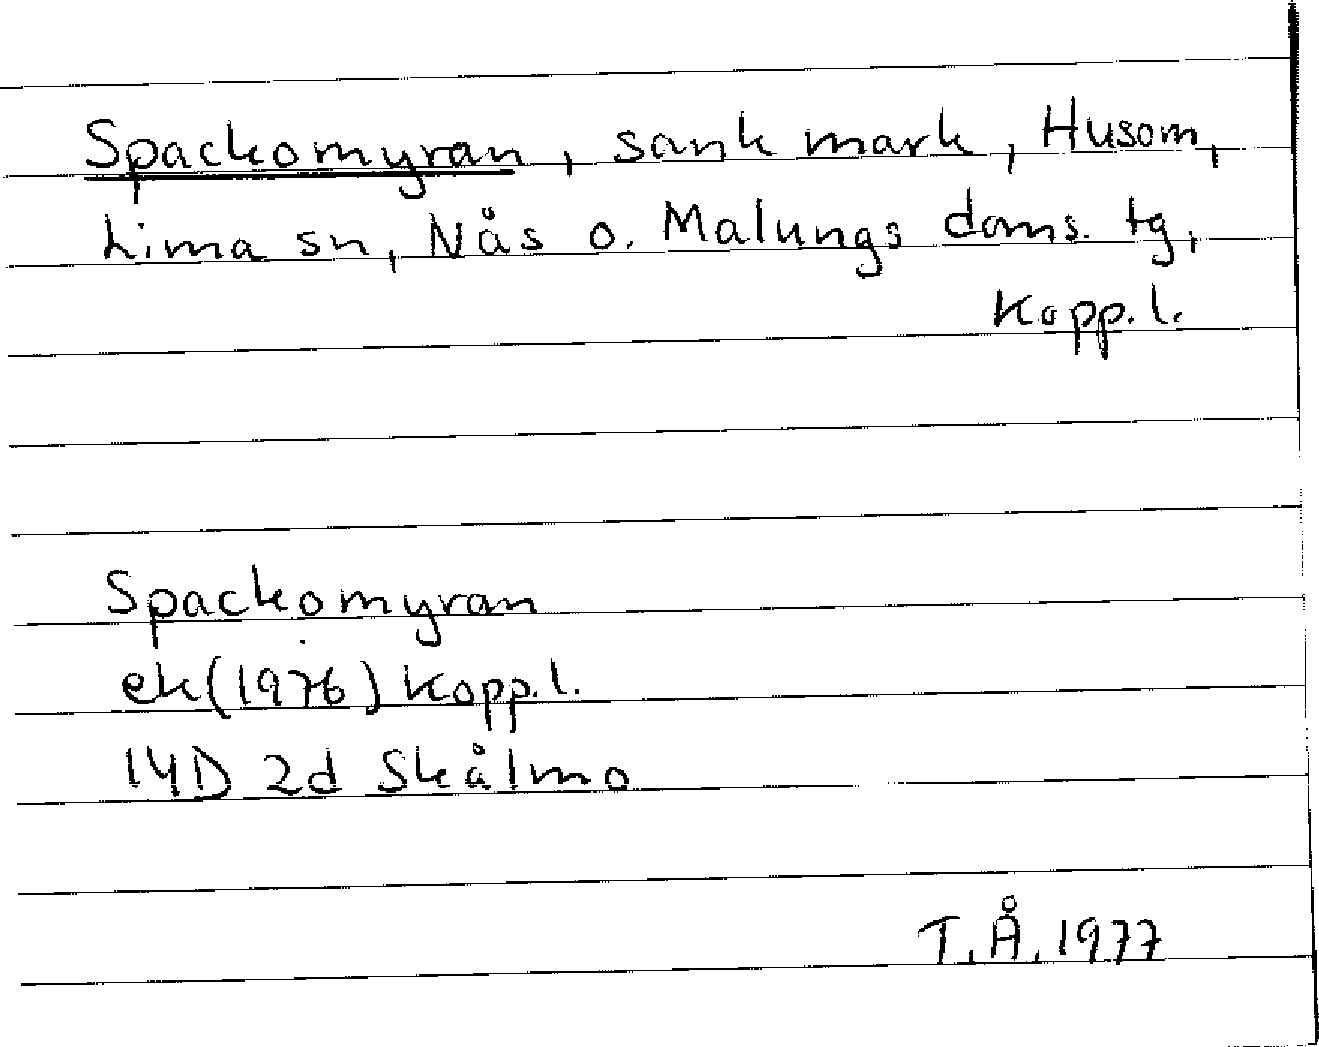 Spackomyran, sank mark, Husom,
Lima sn, Nås o. Malungs doms. tg,
Kopp.l.
Spackomyran
ek(1976) Kopp.l.
14D 2d Skålmo
T.Å. 1977